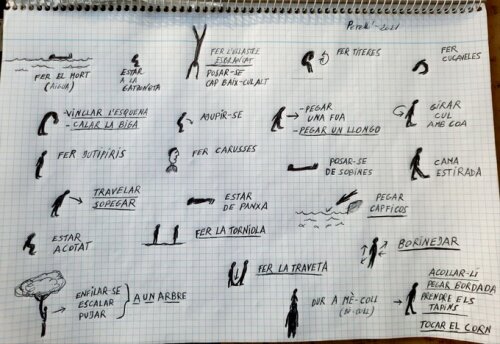 Perelló-2021
FER EL MORT
(AIGUA)
ESTAR
A LA
GATZONETA
FER L'ULLASTRE
ESBRANCAT
POSAR-SE
CAP BAIX-CUL ALT
FER TÍTERES
FER
CUCAVELES
-VINCLAR L'ESQUENA
-CALAR LA BIGA
AJUPIR-SE
-PEGAR
UNA FUA
-PEGAR UN LLONGO
GIRAR
CUL
AMB COA
FER BOTIPIRIS
FER CARUSSES
POSAR-SE
DE SOBINES
CAMA
ESTIRADA
TRAVELAR
SOPEGAR
ESTAR
DE PANXA
PEGAR
CAPFICOS
ESTAR
ACOTAT
FER LA TORNIOLA
BORINEJAR
FER LA TRAVETA
ENFILAR-SE
ESCALAR
PUJAR
A UN ARBRE
DUR A MÈ-COLL
ACOLLAR-LI
PEGAR BORDADA
PRENDRE ELS
TAPINS
TOCAR EL CORN